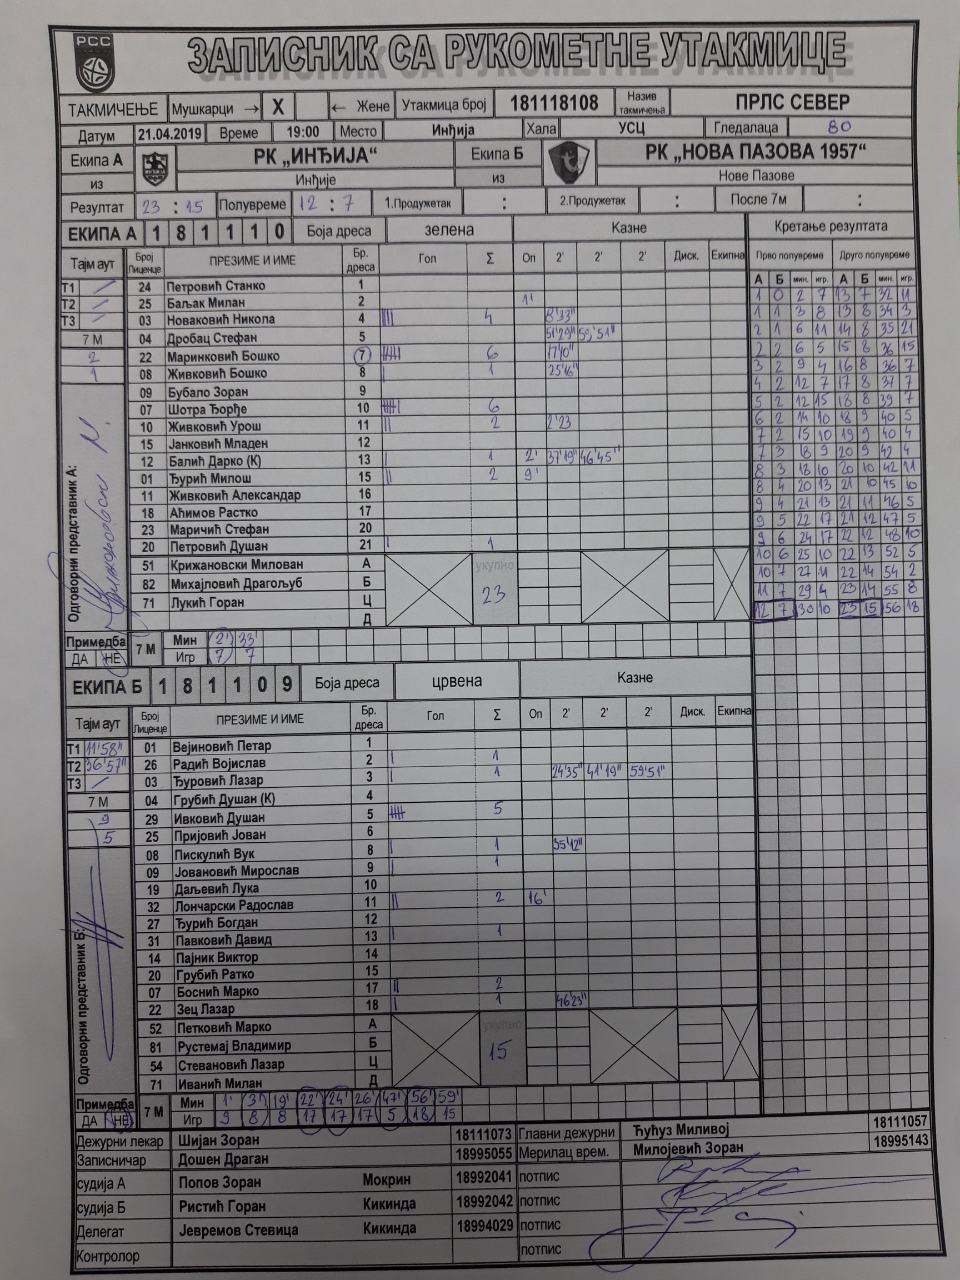 РСС
ЗАПИСНИК СА РУКОМЕТНЕ УТАКМИЦЕ
ТАКМИЧЕЊЕ Мушкарци → X ← Жене Утакмица број 181118108 Назив такмичења ПРЛС СЕВЕР
Датум 21.04.2019 Време 19:00 Место Инђија Хала УСЦ Гледалаца 80
Екипа А РК „ИНЂИЈА“ Екипа Б РК „НОВА ПАЗОВА 1957“
из Инђије из Нове Пазове
Резултат 23 : 15 Полувреме 12 : 7 1.Продужетак : 2.Продужетак : После 7м :
ЕКИПА А 1 8 1 1 1 0 Боја дреса зелена Казне Кретање резултата
Тајм аут Број Лиценце ПРЕЗИМЕ И ИМЕ Бр. дреса Гол Σ Оп 2' 2' 2' Диск. Екипна Прво полувреме Друго полувреме
А Б мин. игр. А Б мин. игр.
Т1 / 24 Петровић Станко 1
Т2 / 25 Баљак Милан 2 1'
Т3 / 03 Новаковић Никола 4 |||| 4 8'33"
7 М 04 Дробац Стефан 5 51'29" 59'51"
2 22 Маринковић Бошко 7 6 17'0"
1 08 Живковић Бошко 8 | 1 25'16"
09 Бубало Зоран 9
07 Шотра Ђорђе 10 6
10 Живковић Урош 11 || 2 2'23
15 Јанковић Младен 12
12 Балић Дарко (К) 13 | 1 2' 37'19" 46'45"
01 Ђурић Милош 15 || 2 9'
11 Живковић Александар 16
18 Аћимов Растко 17
23 Маричић Стефан 20
20 Петровић Душан 21 | 1
51 Крижановски Милован А укупно
82 Михајловић Драгољуб Б 23
71 Лукић Горан Ц
Д
Одговорни представник А:
1 0 2 7 13 7 32 11
1 1 3 8 13 8 34 3
2 1 6 11 14 8 35 21
2 2 6 5 15 8 36 15
3 2 9 4 16 8 36 7
4 2 12 7 17 8 37 7
5 2 12 15 18 8 39 7
6 2 14 10 18 9 40 5
7 2 15 10 19 9 40 4
7 3 18 9 20 9 42 4
8 3 18 10 20 10 42 11
8 4 20 13 21 10 45 10
9 4 21 13 21 11 46 5
9 5 22 17 21 12 47 5
9 6 24 17 22 12 48 10
10 6 25 10 22 13 52 5
10 7 27 11 22 14 54 2
11 7 29 4 23 14 55 8
12 7 30 10 23 15 56 18
Примедба ДА НЕ 7 М Мин 2' 33'
Игр 7 7
ЕКИПА Б 1 8 1 1 0 9 Боја дреса црвена Казне
Тајм аут Број Лиценце ПРЕЗИМЕ И ИМЕ Бр. дреса Гол Σ Оп 2' 2' 2' Диск. Екипна
Т1 11'58" 01 Вејиновић Петар 1
Т2 36'57" 26 Радић Војислав 2 | 1
Т3 / 03 Ђуровић Лазар 3 | 1 24'35" 41'19" 59'51"
7 М 04 Грубић Душан (К) 4
9 29 Ивковић Душан 5 5
5 25 Пријовић Јован 6
08 Пискулић Вук 8 | 1 55'12"
09 Јовановић Мирослав 9 | 1
19 Даљевић Лука 10
32 Лончарски Радослав 11 || 2 16'
27 Ђурић Богдан 12
31 Павковић Давид 13 | 1
14 Пајник Виктор 14
20 Грубић Ратко 15
07 Боснић Марко 17 || 2
22 Зец Лазар 18 | 1 46'23"
52 Петковић Марко А укупно
81 Рустемај Владимир Б 15
54 Стевановић Лазар Ц
71 Иванић Милан Д
Одговорни представник Б:
Примедба ДА НЕ 7 М Мин 1' 3' 19' 22' 24' 26' 47' 56' 59'
Игр 9 8 8 17 17 17 5 18 15
Дежурни лекар Шијан Зоран 18111073 Главни дежурни Ђућуз Миливој 18111057
Записничар Дошен Драган 18995055 Мерилац врем. Милојевић Зоран 18995143
судија А Попов Зоран Мокрин 18992041 потпис
судија Б Ристић Горан Кикинда 18992042 потпис
Делегат Јевремов Стевица Кикинда 18994029 потпис
Контролор потпис